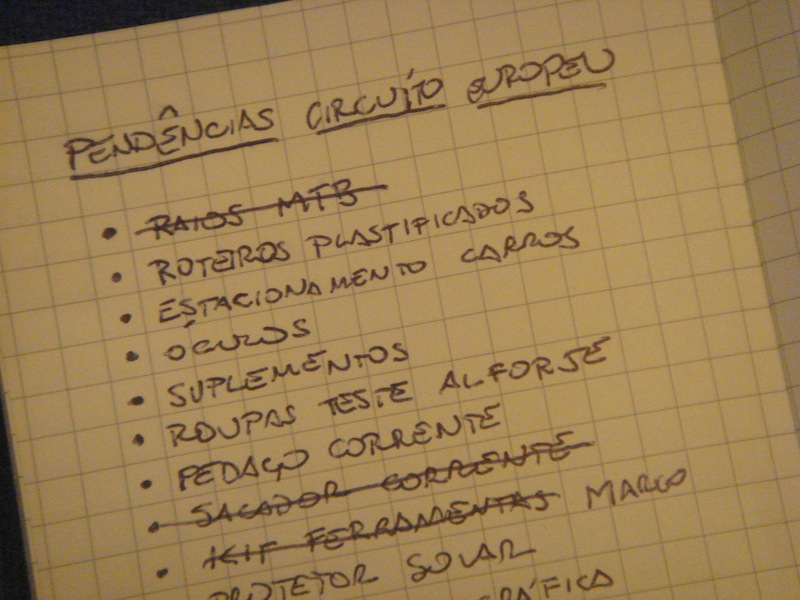 PENDÊNCIAS CIRCUÍTO EUROPEU
• RAIOS MTB
• ROTEIROS PLASTIFICADOS
• ESTACIONAMENTO CARROS
• ÓCULOS
• SUPLEMENTOS
• ROUPAS TESTE ALFORJE
• PEDAÇO CORRENTE
• SACADOR CORRENTE
• KIT FERRAMENTAS MARCO
PROTETOR SOLAR